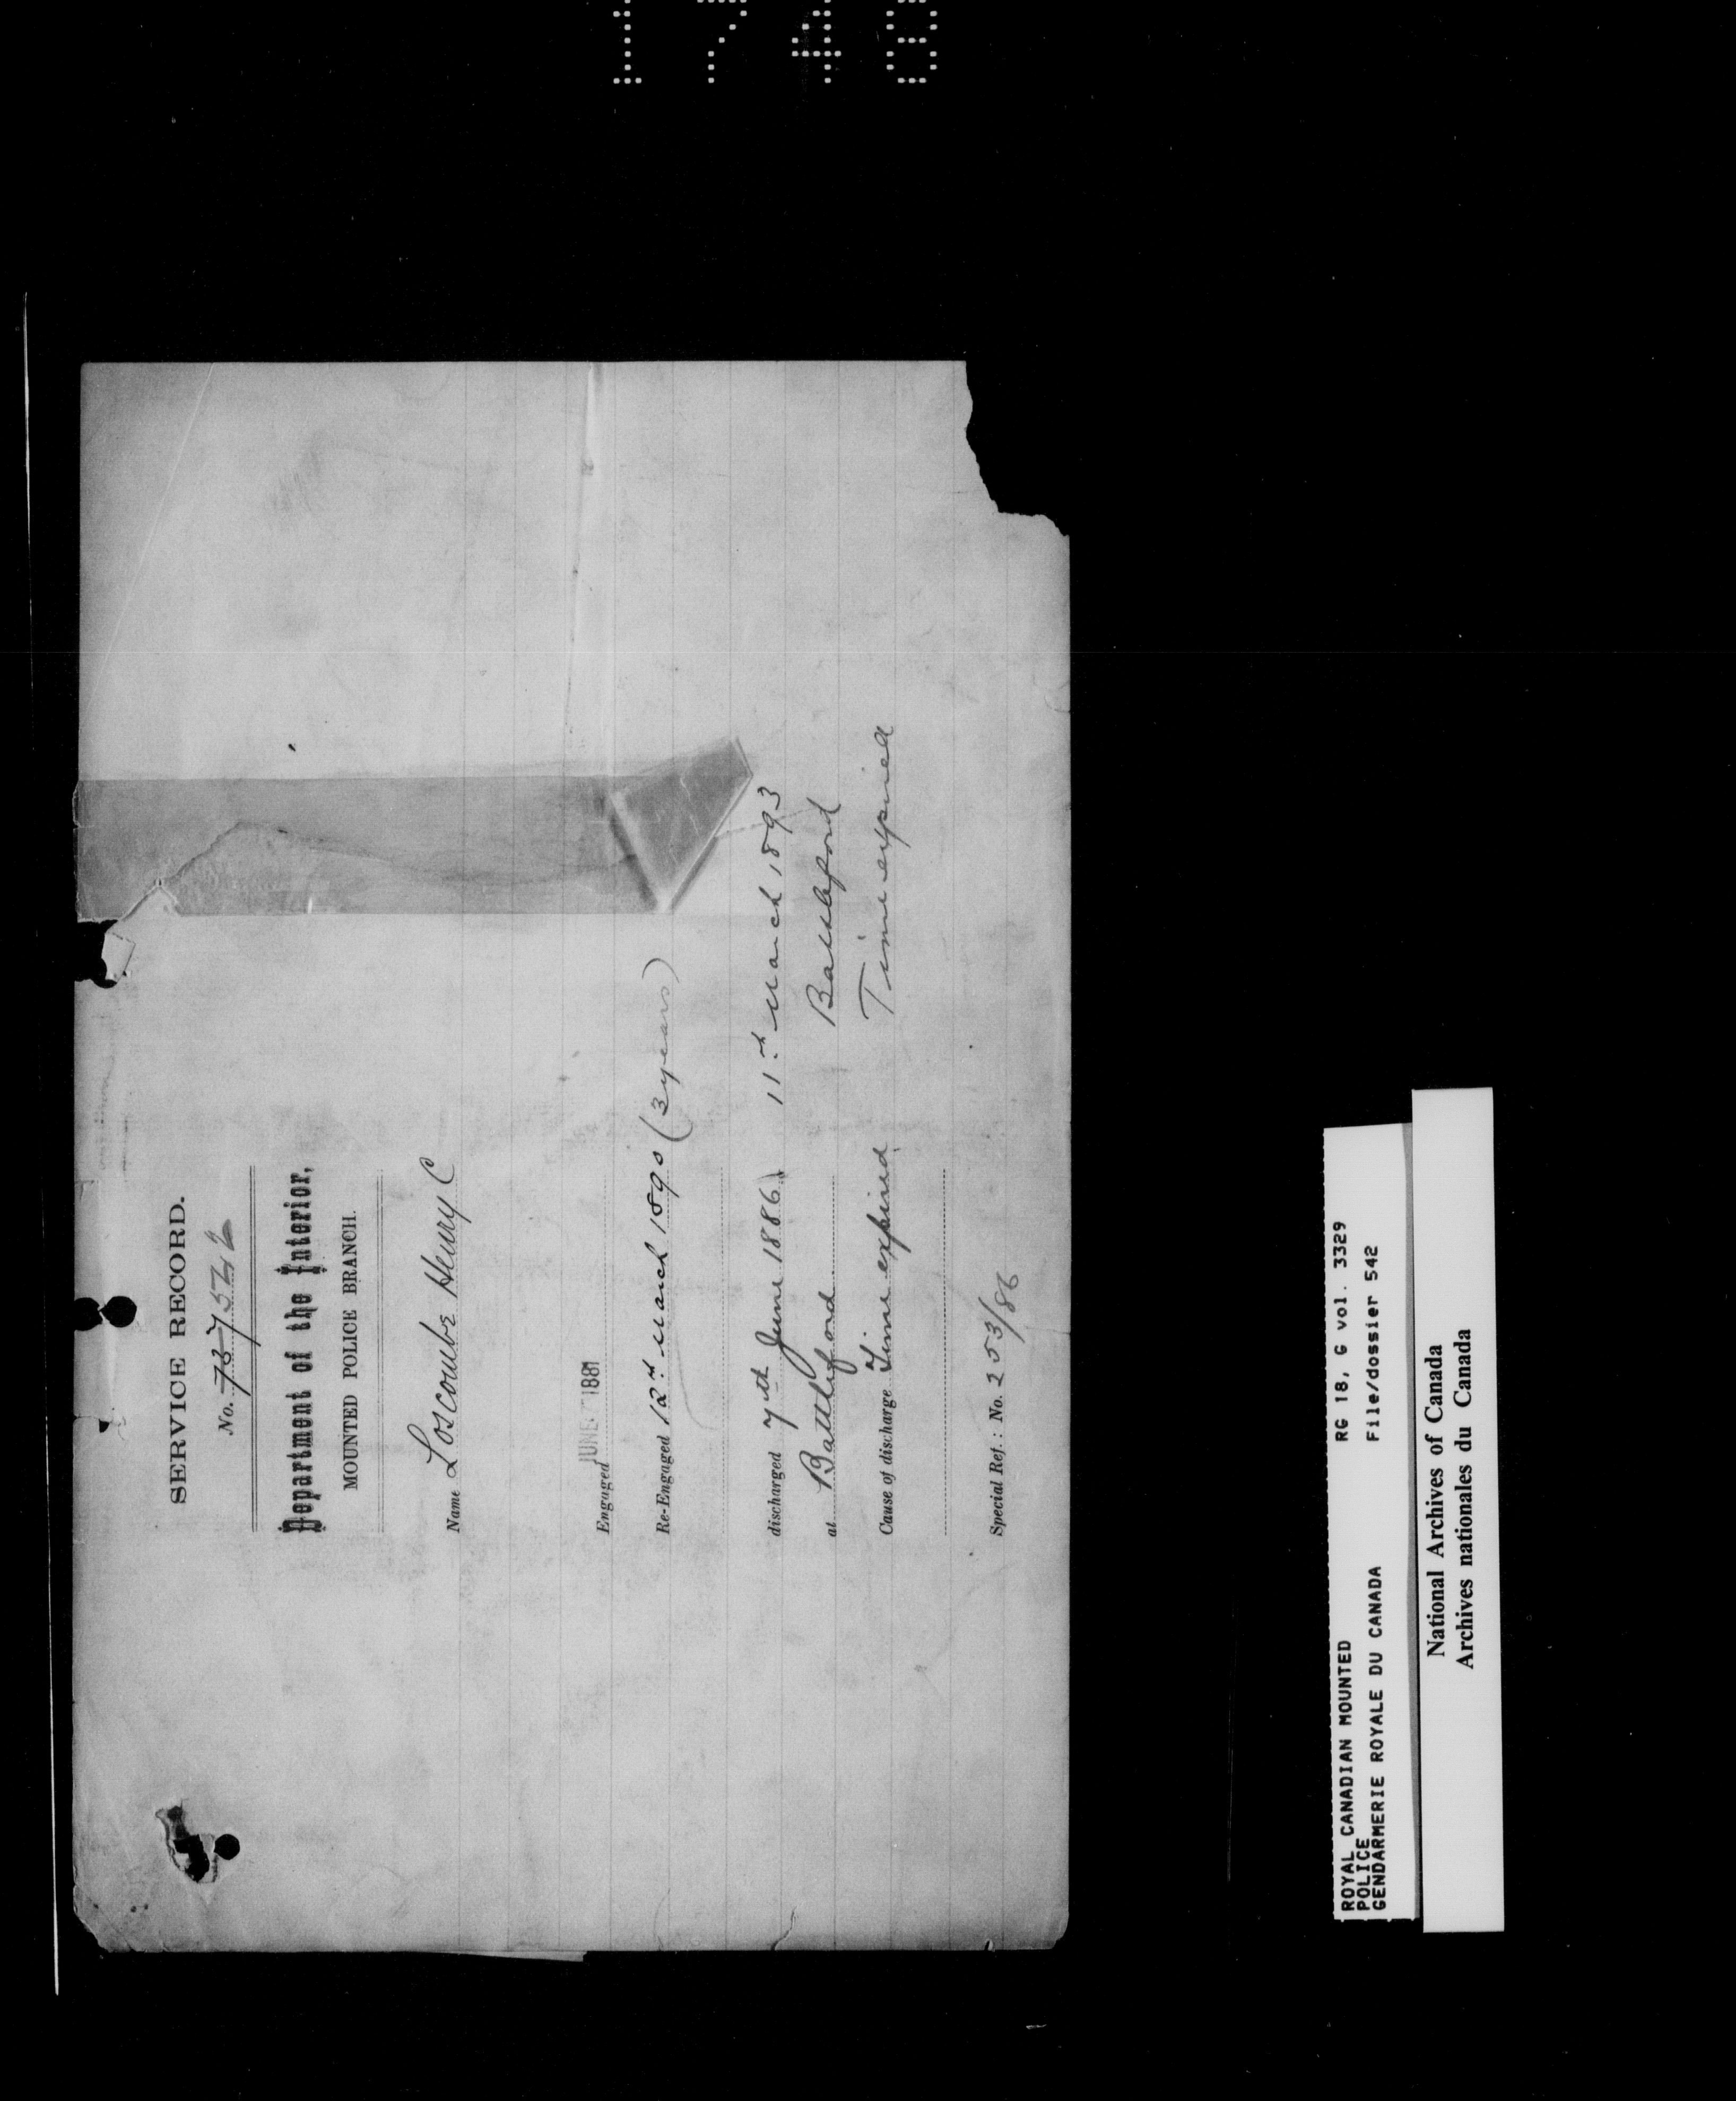 SERVICE RECORD.
No. 737 542
Department of the Interior,
MOUNTED POLICE BRANCH.
Name Loscombe Henry C
Engaged JUNE 7 1881
Re-Engaged 12th March 1890 (3 years)
discharged 7th June 1886 11th March 1893
at Battleford Battleford
Cause of discharge Time expired Time expired
Special Ref.: No. 253/86
ROYAL CANADIAN MOUNTED RG 18, G vol. 3329
POLICE
GENDARMERIE ROYALE DU CANADA File/dossier 542
National Archives of Canada
Archives nationales du Canada